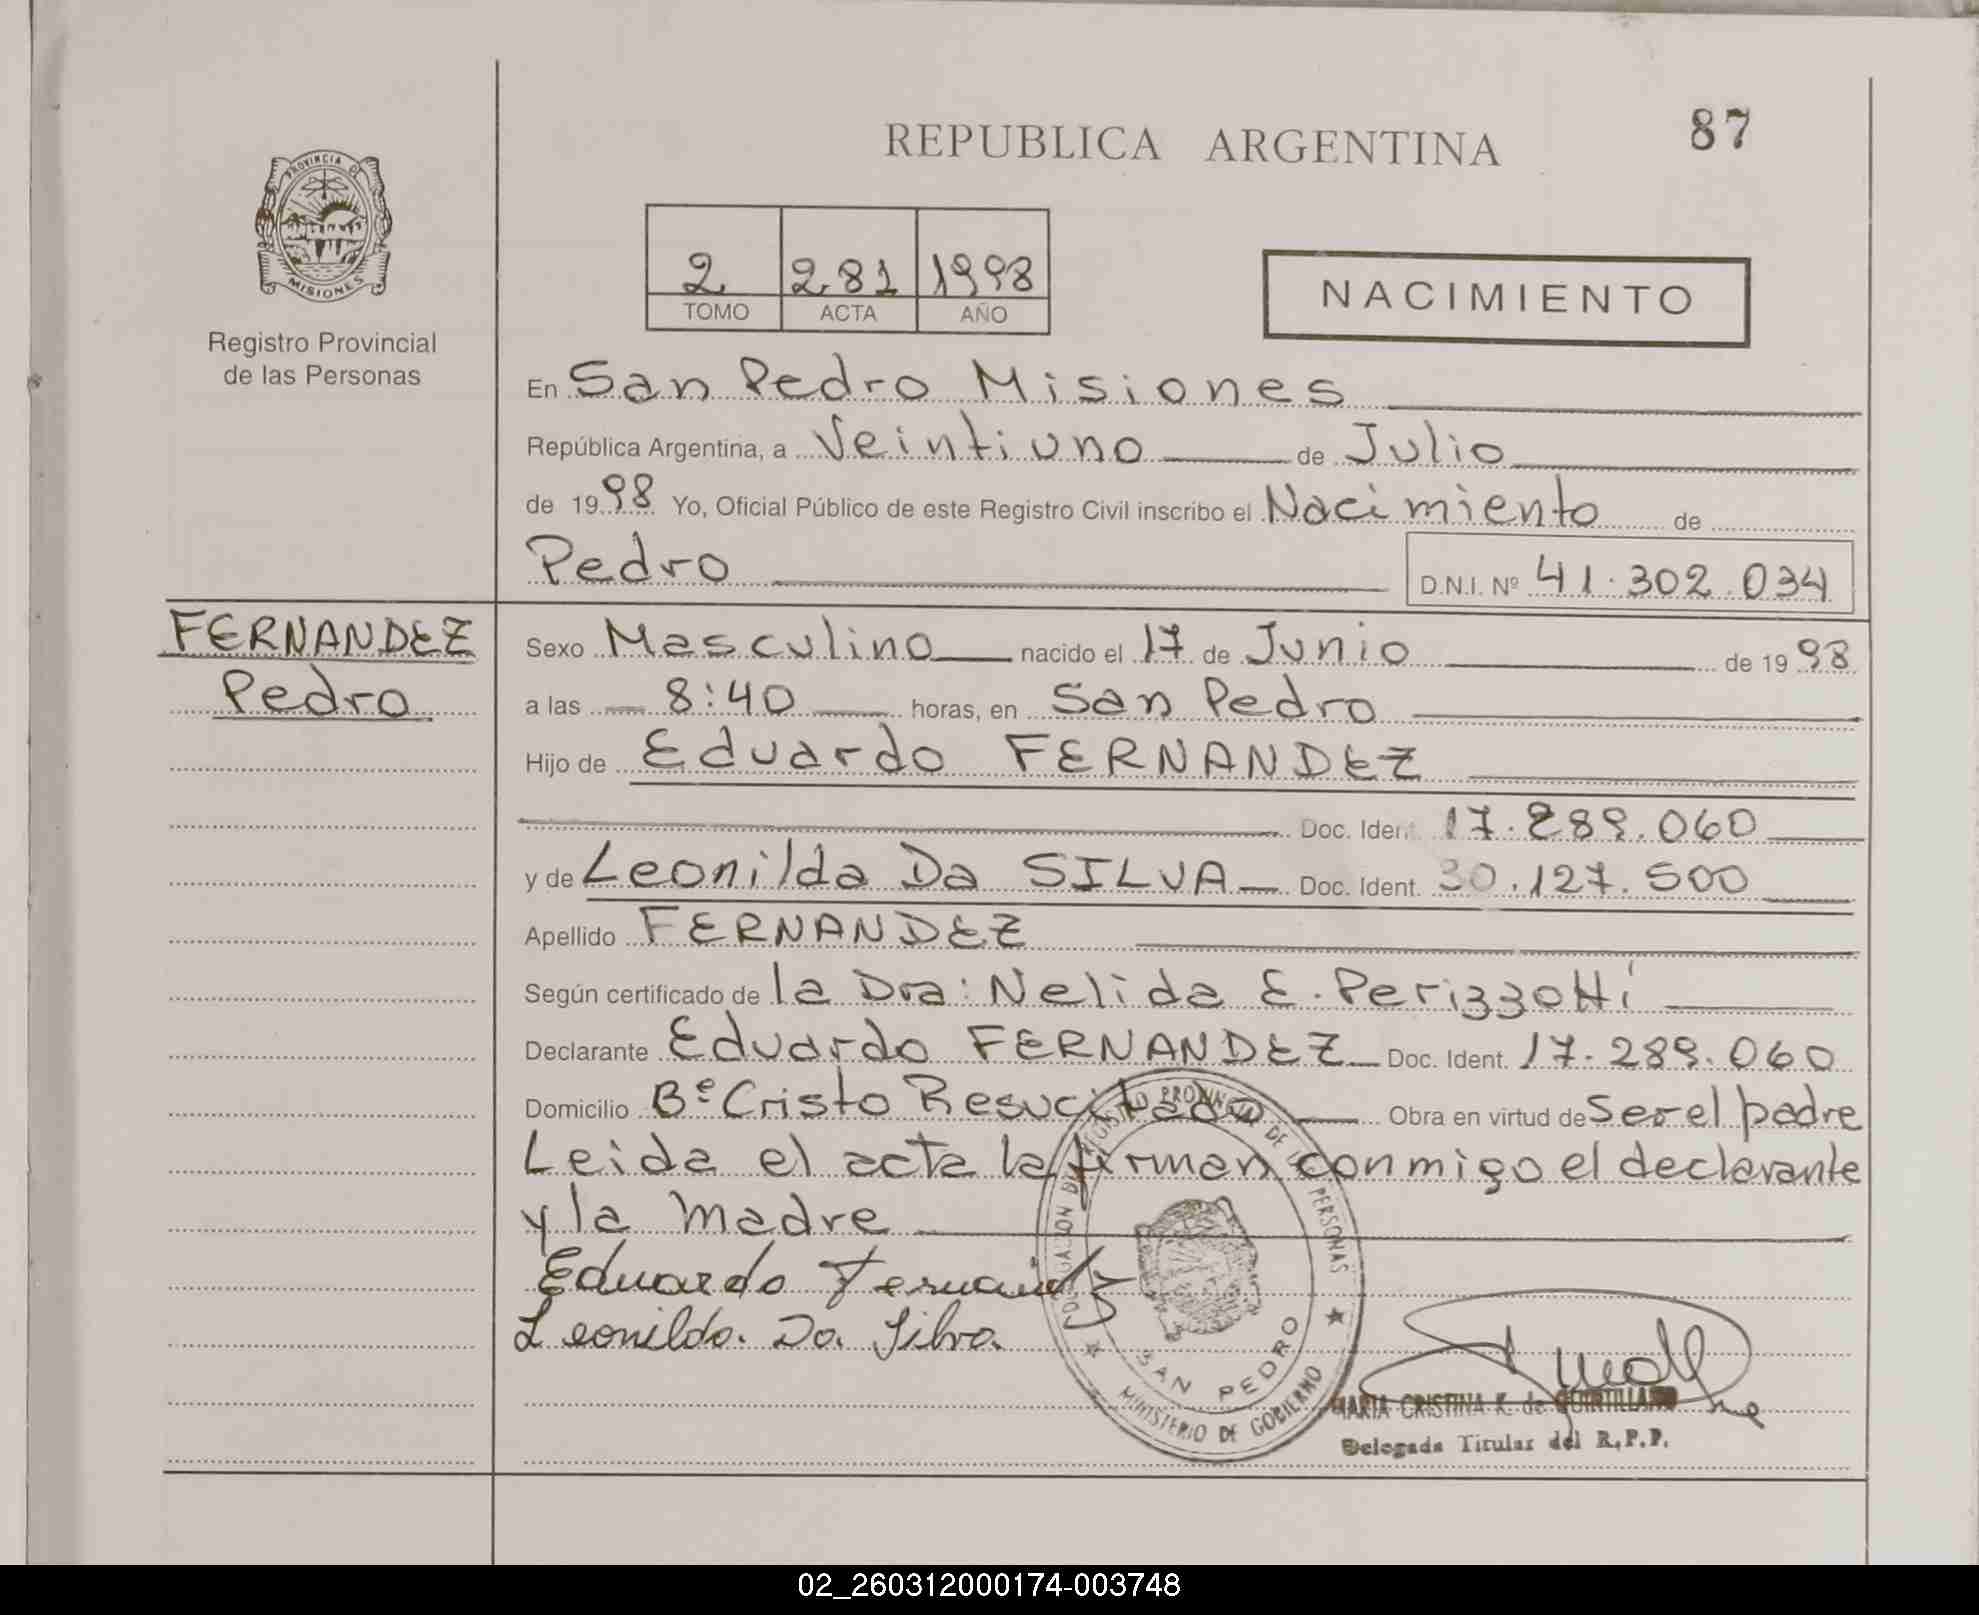 REPUBLICA ARGENTINA
87
PROVINCIA DE
MISIONES
Registro Provincial
de las Personas
2 281 1998
TOMO ACTA AÑO
NACIMIENTO
En San Pedro Misiones
República Argentina, a Veintiuno de Julio
de 1998 Yo, Oficial Público de este Registro Civil inscribo el Nacimiento de
Pedro D.N.I. Nº 41.302.034
FERNANDEZ
Pedro
Sexo Masculino nacido el 17 de Junio de 1998
a las 8:40 horas, en San Pedro
Hijo de Eduardo FERNANDEZ
Doc. Ident. 17.289.060
y de Leonilda Da SILVA Doc. Ident. 30.127.500
Apellido FERNANDEZ
Según certificado de la Dra: Nelida E. Perizzotti
Declarante Eduardo FERNANDEZ Doc. Ident. 17.289.060
Domicilio Bº Cristo Resucitado Obra en virtud de Ser el padre
Leida el acta la firman conmigo el declarante
y la madre
Eduardo Fernandez
Leonilda Da Silva
DELEGACION DEL REGISTRO PROVINCIAL DE LAS PERSONAS
SAN PEDRO
MINISTERIO DE GOBIERNO
MARIA CRISTINA K. de QUINTILLAN
Delegada Titular del R.P.P.
02_260312000174-003748